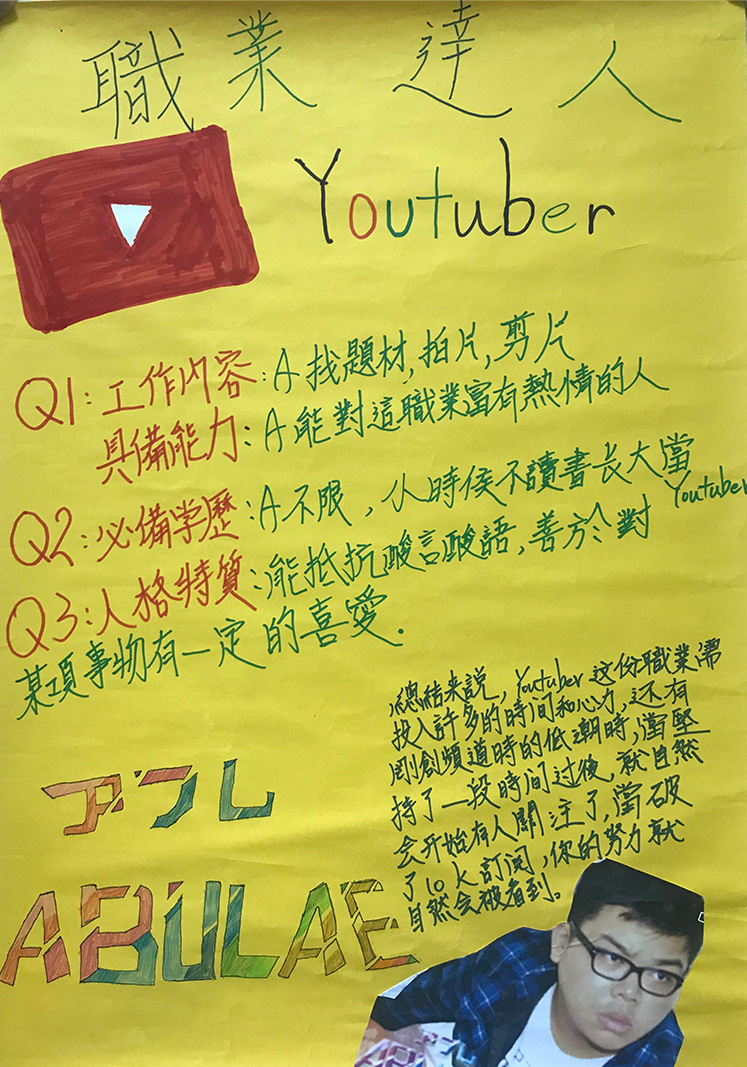 職業 達人
Youtuber
Q1:工作內容:A找題材,拍片,剪片
具備能力:A能對這職業富有熱情的人
Q2:必備学歷:A不限,从時侯不讀書長大當Youtuber
Q3:人格特質:能抵抗酸言酸語,善於對
某項事物有一定的喜愛.
總結来説,Youtuber这份職業需
投入許多的時间和心力,还有
剛創頻道時的低潮時,當堅
持了一段時间过後,就自然
会开始有人関注了,當破
了10k訂阅,你的努力就
自然会被看到。
アブル
ABULAE